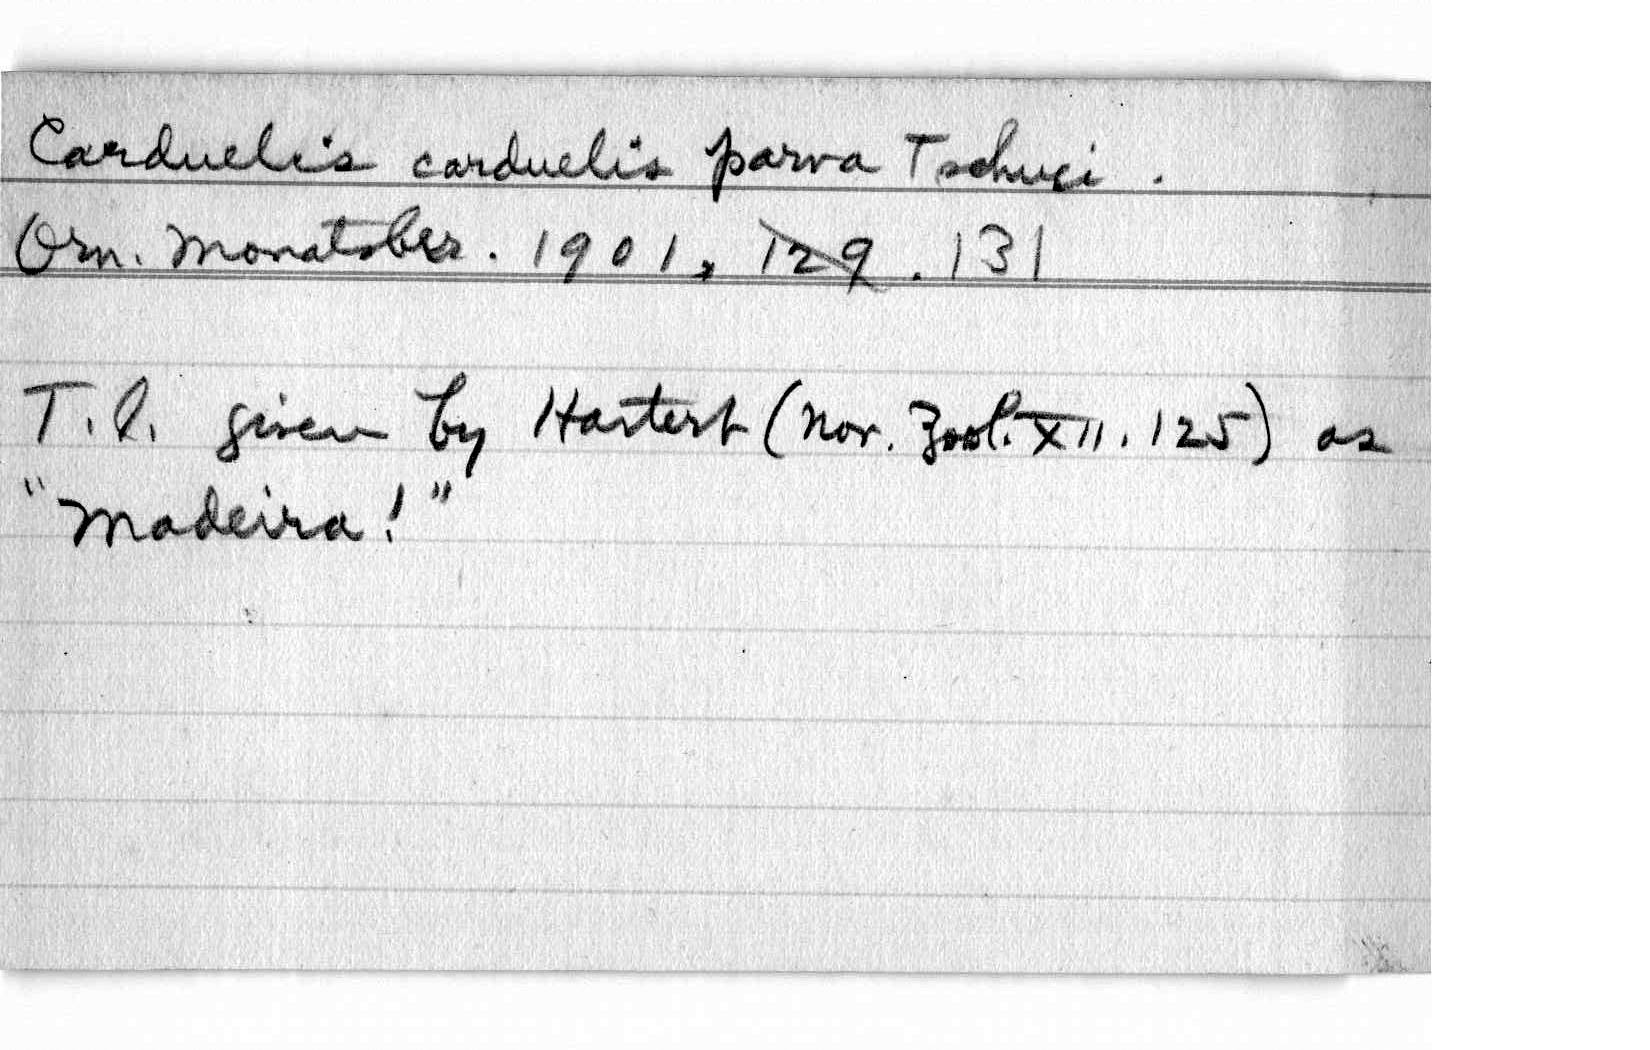 Carduelis carduelis parva Tschusi.
Orn. Monatsber. 1901, 129. 131
T.l. given by Hartert (Nov. Zool. XII. 125) as
"Madeira!"